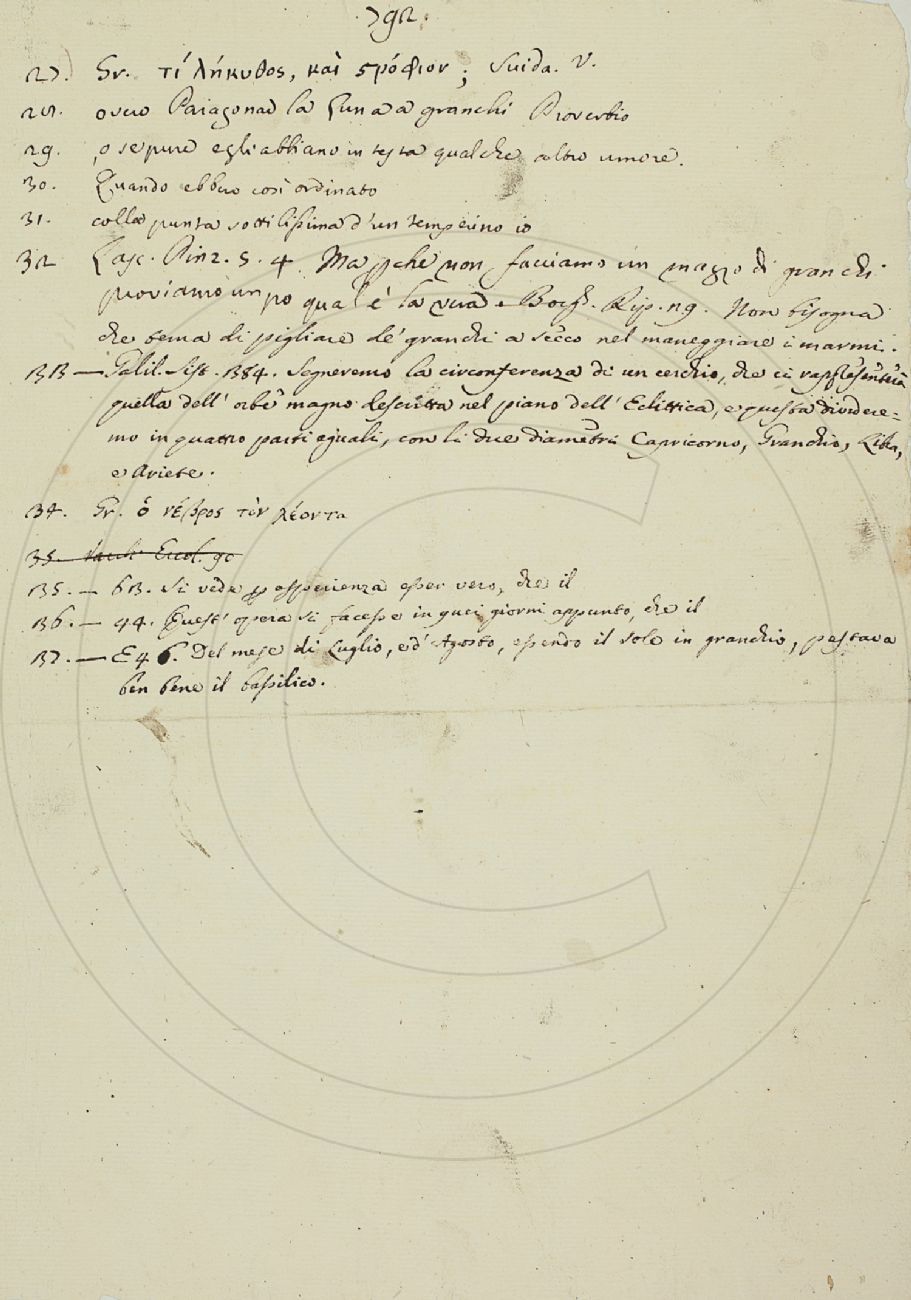 792.
27. Gr. τί λήκυθος, καὶ ςρόφιον; Suida. V.
28. ovvero Paragonar la Luna a granchi Proverbio
29. o se pure egli abbiano in testa qualche altro umore.
30. Quando ebbero così ordinato
31. colla punta sottilissima d'un temperino io
32 Lasc. Pinz. 5. 4. Ma pchè non facciamo un mazzo di granchi.
proviamo un po qual è la vera. Borgh. Rip. 119. Non bisogna
che tema di pigliare de' granchi a secco nel maneggiare i marmi.
33 — Galil. Sist. 384. Segneremo la circonferenza di un cerchio, che ci rappresenterà
quella dell' orbe magno descritta nel piano dell' Eclittica, e questa divideremo
mo in quattro parti eguali, con li due diametri Capricorno, Granchio, Libra,
e Ariete.
34. Gr. ὁ νέβρος τὸν λέοντα
35. Varch. Ercol. 90
35. — 63. Si vede p esperienza esser vero, che il
36. — 44. Quest' opera si facesse in quei giorni appunto, che il
37. — E 46. Del mese di Luglio, ed' Agosto, essendo il sole in granchio, pestava
ben bene il basilico.